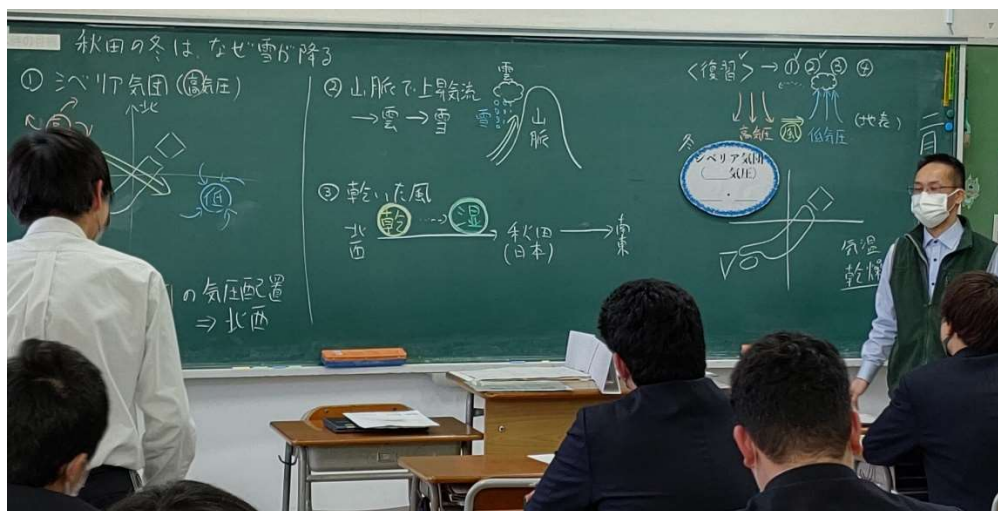 秋田の冬は、なぜ雪が降る
① シベリア気団(高気圧)
北
高
低
の気圧配置
⇒ 北西
② 山脈で上昇気流
→雲→雪
雲
雪
山脈
③ 乾いた風
北西
乾 ····> 湿
秋田
(日本)
南東
<復習> → ① ② ③ ④
高気圧
風
低気圧
(地表)
冬
シベリア気団
(___気圧)
気温
乾燥